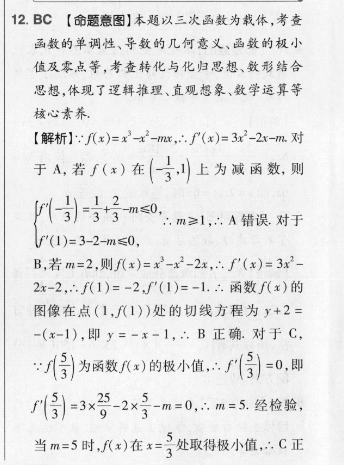 12. BC 【命题意图】本题以三次函数为载体,考查
函数的单调性、导数的几何意义、函数的极小
值及零点等,考查转化与化归思想、数形结合
思想,体现了逻辑推理、直观想象、数学运算等
核心素养.
【解析】∵f(x)=x³-x²-mx,∴f′(x)=3x²-2x-m. 对
于 A, 若 f(x) 在(-1/3,1)上为减函数,则
{f′(-1/3)=1/3+2/3-m≤0,
f′(1)=3-2-m≤0, ∴m≥1,∴A 错误. 对于
B,若 m=2,则f(x)=x³-x²-2x,∴f′(x)=3x²-
2x-2,∴f(1)=-2,f′(1)=-1.∴函数f(x)的
图像在点(1,f(1))处的切线方程为 y+2=
-(x-1),即 y=-x-1,∴B 正确. 对于 C,
∵f(5/3)为函数f(x)的极小值,∴f′(5/3)=0,即
f′(5/3)=3×25/9-2×5/3-m=0,∴m=5. 经检验,
当 m=5 时,f(x)在 x=5/3处取得极小值,∴C 正